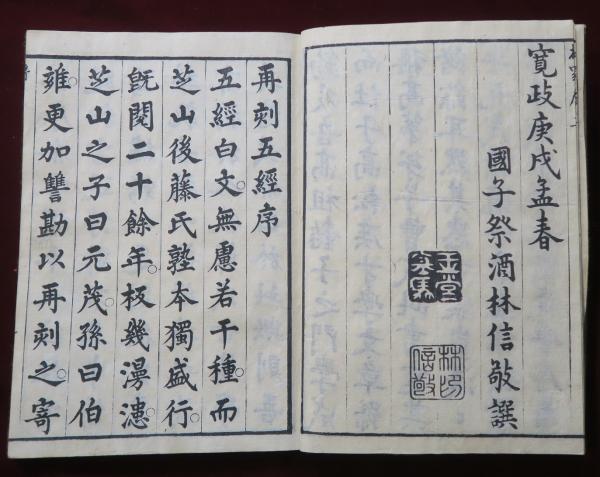 寬政庚戌孟春
國子祭酒林信敬譔
林印信敬
再刻五經序
五經白文無慮若干種。而
芝山後藤氏塾本獨盛行。
旣閱二十餘年。板幾漫漶。
芝山之子曰元茂。孫曰伯
雍。更加讐勘。以再刻之。寄